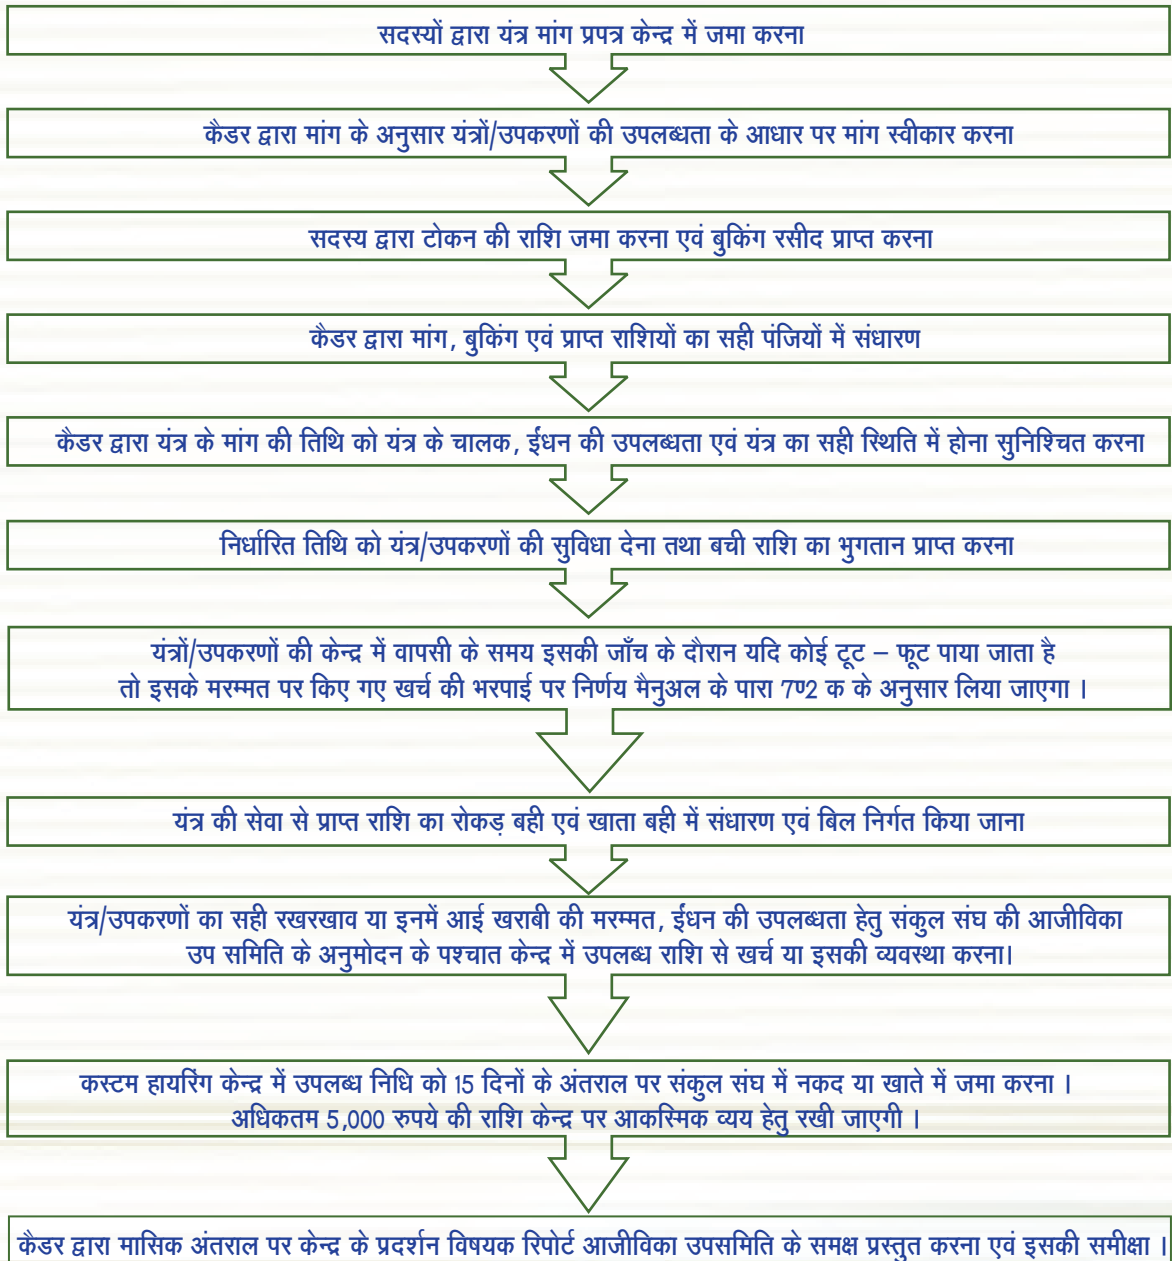 सदस्यों द्वारा यंत्र मांग प्रपत्र केन्द्र में जमा करना
कैडर द्वारा मांग के अनुसार यंत्रों/उपकरणों की उपलब्धता के आधार पर मांग स्वीकार करना
सदस्य द्वारा टोकन की राशि जमा करना एवं बुकिंग रसीद प्राप्त करना
कैडर द्वारा मांग, बुकिंग एवं प्राप्त राशियों का सही पंजियों में संधारण
कैडर द्वारा यंत्र के मांग की तिथि को यंत्र के चालक, ईंधन की उपलब्धता एवं यंत्र का सही स्थिति में होना सुनिश्चित करना
निर्धारित तिथि को यंत्र/उपकरणों की सुविधा देना तथा बची राशि का भुगतान प्राप्त करना
यंत्रों/उपकरणों की केन्द्र में वापसी के समय इसकी जाँच के दौरान यदि कोई टूट – फूट पाया जाता है
तो इसके मरम्मत पर किए गए खर्च की भरपाई पर निर्णय मैनुअल के पारा 7ण्2 क के अनुसार लिया जाएगा ।
यंत्र की सेवा से प्राप्त राशि का रोकड़ बही एवं खाता बही में संधारण एवं बिल निर्गत किया जाना
यंत्र/उपकरणों का सही रखरखाव या इनमें आई खराबी की मरम्मत, ईंधन की उपलब्धता हेतु संकुल संघ की आजीविका
उप समिति के अनुमोदन के पश्चात केन्द्र में उपलब्ध राशि से खर्च या इसकी व्यवस्था करना।
कस्टम हायरिंग केन्द्र में उपलब्ध निधि को 15 दिनों के अंतराल पर संकुल संघ में नकद या खाते में जमा करना ।
अधिकतम 5,000 रुपये की राशि केन्द्र पर आकस्मिक व्यय हेतु रखी जाएगी ।
कैडर द्वारा मासिक अंतराल पर केन्द्र के प्रदर्शन विषयक रिपोर्ट आजीविका उपसमिति के समक्ष प्रस्तुत करना एवं इसकी समीक्षा ।